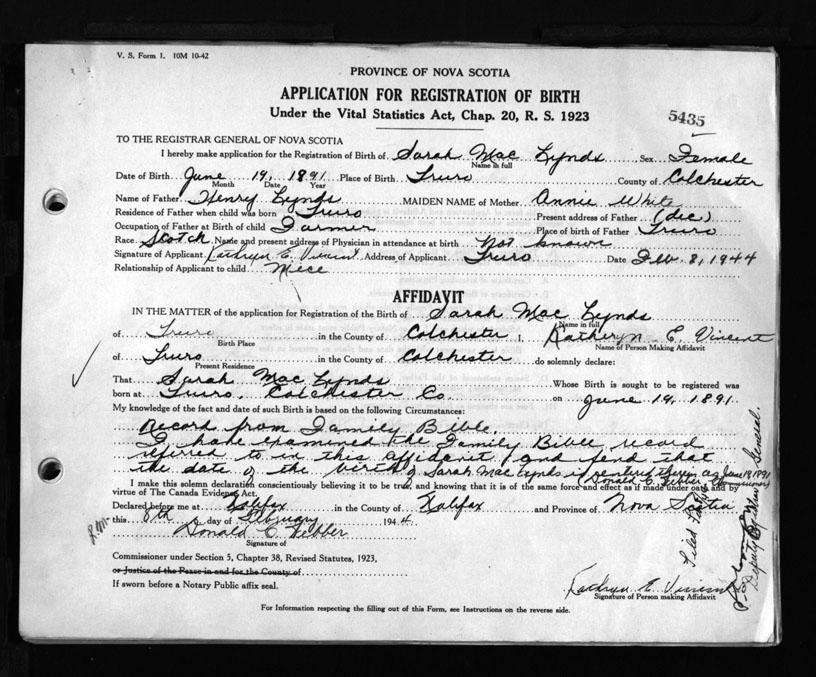 V. S. Form 1. 10M 10-42
PROVINCE OF NOVA SCOTIA
APPLICATION FOR REGISTRATION OF BIRTH
Under the Vital Statistics Act, Chap. 20, R. S. 1923
5435
TO THE REGISTRAR GENERAL OF NOVA SCOTIA
I hereby make application for the Registration of Birth of Sarah Mac Lynds Sex Female
Name in full
Date of Birth June 19, 1891 Place of Birth Truro County of Colchester
Month Date Year
Name of Father Henry Lynds MAIDEN NAME of Mother Annie White
Residence of Father when child was born Truro Present address of Father (dec)
Occupation of Father at Birth of child Farmer Place of birth of Father Truro
Race Scotch Name and present address of Physician in attendance at birth Not known
Signature of Applicant Kathryn E. Vincent Address of Applicant Truro Date Feb. 8, 1944
Relationship of Applicant to child Niece
AFFIDAVIT
IN THE MATTER of the application for Registration of the Birth of Sarah Mac Lynds
Name in full
of Truro in the County of Colchester I, Katheryn E. Vincent
Birth Place Name of Person Making Affidavit
of Truro in the County of Colchester do solemnly declare:
Present Residence
That Sarah Mac Lynds Whose Birth is sought to be registered was
born at Truro, Colchester Co. on June 19, 1891.
My knowledge of the fact and date of such Birth is based on the following Circumstances:
Record from Family Bible.
I have examined the Family Bible record
referred to in this affidavit and find that
the date of the birth of Sarah Mac Lynds is entered therein as June 19, 1891
(Donald C. Webber Commissioner)
I make this solemn declaration conscientiously believing it to be true, and knowing that it is of the same force and effect as if made under oath and by
virtue of The Canada Evidence Act.
Declared before me at Halifax in the County of Halifax and Province of Nova Scotia
this 8th day of February 1944.
Donald C. Webber
Signature of
Commissioner under Section 5, Chapter 38, Revised Statutes, 1923,
or Justice of the Peace in and for the County of
If sworn before a Notary Public affix seal.
Kathryn E. Vincent
Signature of Person making Affidavit
For Information respecting the filling out of this Form, see Instructions on the reverse side.
Deputy Registrar General.